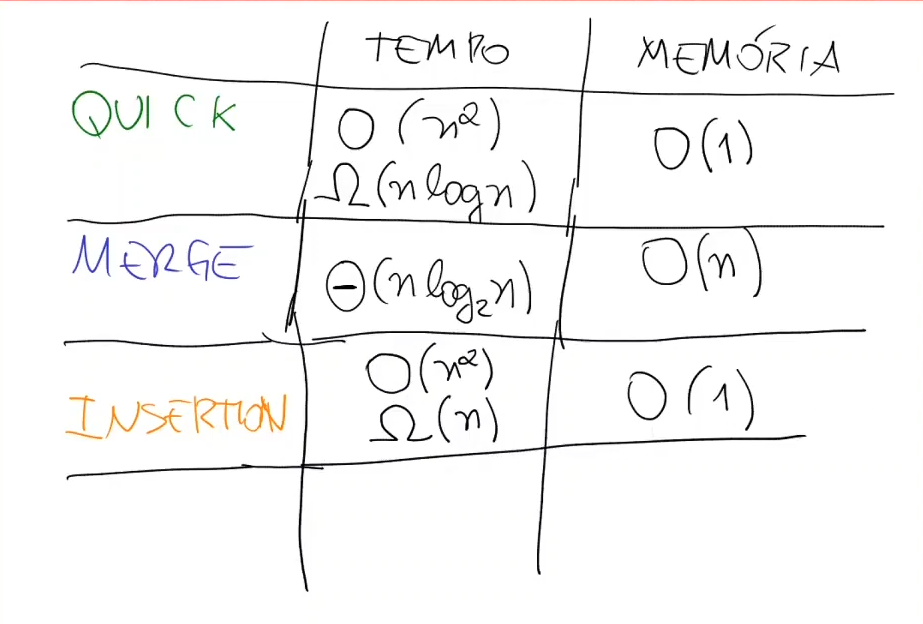 TEMPO MEMÓRIA
QUICK O(n²) O(1)
Ω(n log n)
MERGE Θ(n log₂ n) O(n)
INSERTION O(n²) O(1)
Ω(n)